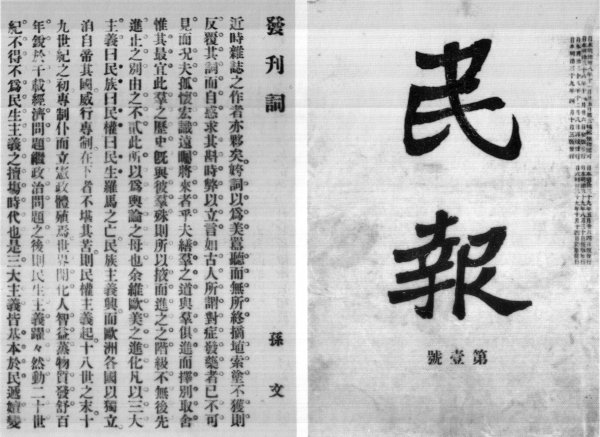 民報
第壹號
發刊詞
孫文
近時雜誌之作者亦夥矣。姱詞以爲美。囂聽而無所終。摘埴索塗不獲則
反覆其詞而自惑。求其斟時弊以立言。如古人所謂對症發藥者。已不可
見。而況夫孤懷宏識。遠矚將來者乎。夫繕羣之道。與羣俱進。而擇別取舍。
惟其最宜。此羣之歷史。既與彼羣殊。則所以掖而進之之階級。不無後先
進止之別。由之不貳。此所以爲輿論之母也。余維歐美之進化。凡以三大
主義。曰民族。曰民權。曰民生。羅馬之亡。民族主義興。而歐洲各國以獨立。
洎自帝其國。威行專制。在下者不堪其苦。則民權主義起。十八世之末。十
九世紀之初。專制仆而立憲政體殖焉。世界開化。人智益蒸。物質發舒。百
年銳於千載。經濟問題繼政治問題之後。則民生主義躍々然動。二十世
紀不得不爲民生主義之擅塲時代也。是三大主義皆基本於民。遞嬗變